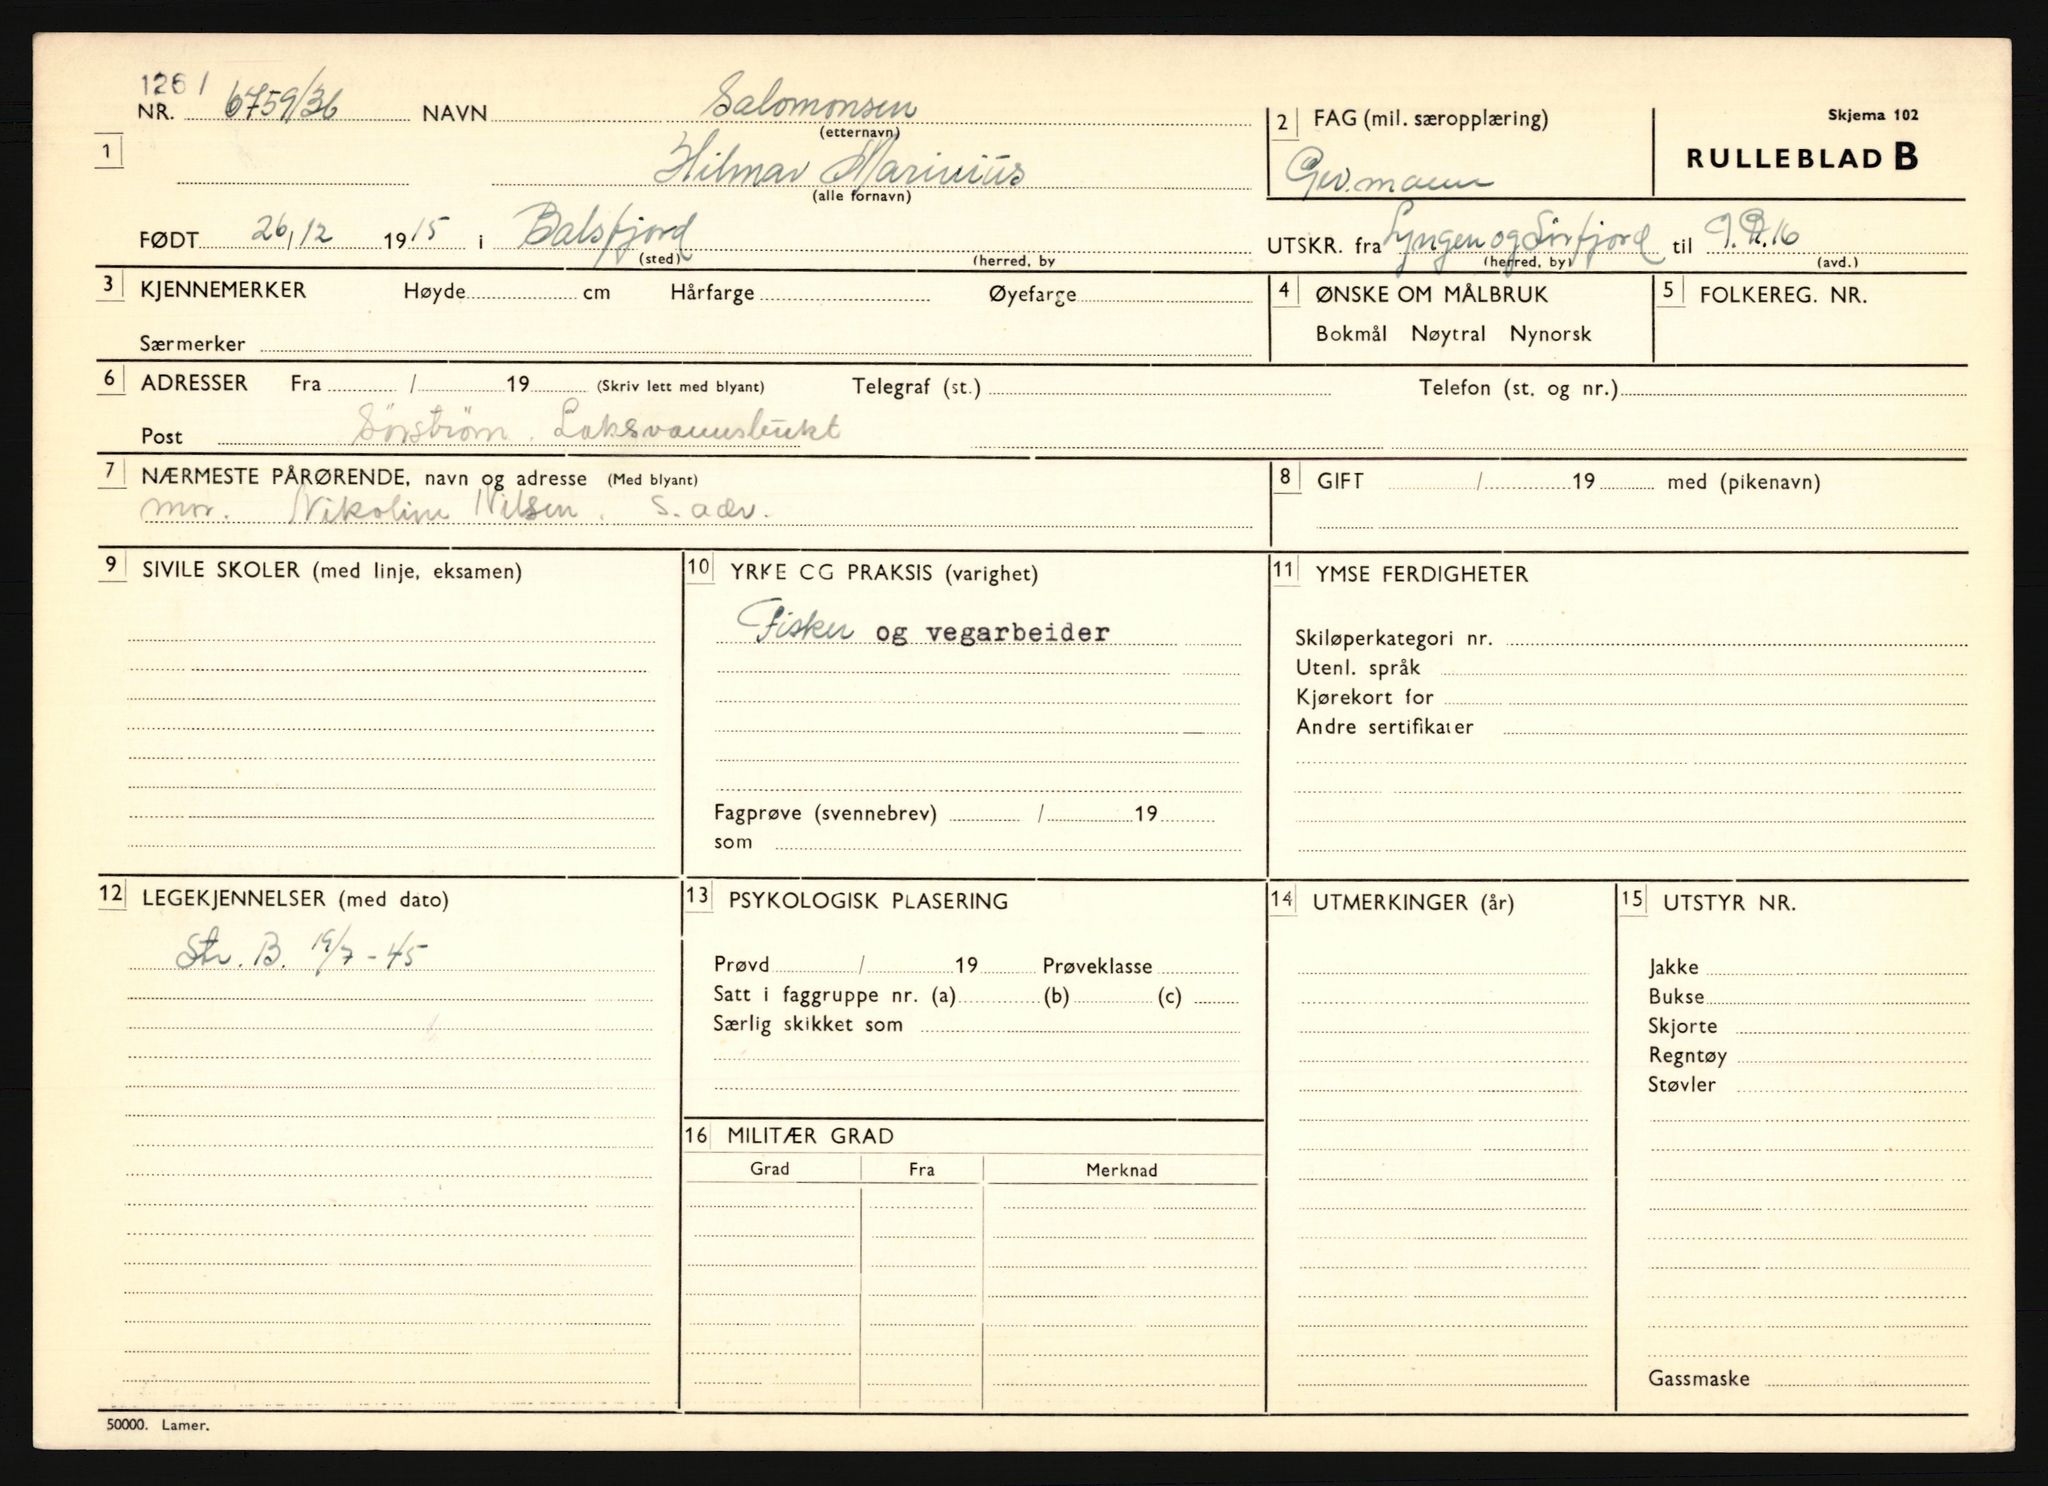 1261
NR. 6759/36 NAVN Salomonsen
(etternavn)
1 Hilmar Marinius
(alle fornavn)
2 FAG (mil. særopplæring)
Gev.mann
Skjema 102
RULLEBLAD B
FØDT 26/12 1915 i Balsfjord
(sted) (herred, by
UTSKR. fra Lyngen og Sørfjord til I.R.16
(herred, by) (avd.)
3 KJENNEMERKER Høyde cm Hårfarge Øyefarge
Særmerker
4 ØNSKE OM MÅLBRUK
Bokmål Nøytral Nynorsk
5 FOLKEREG. NR.
6 ADRESSER Fra / 19 (Skriv lett med blyant) Telegraf (st.) Telefon (st. og nr.)
Post Sørstrøm. Laksvannsbukt
7 NÆRMESTE PÅRØRENDE, navn og adresse (Med blyant)
mor. Nikoline Nilsen. S. adr.
8 GIFT / 19 med (pikenavn)
9 SIVILE SKOLER (med linje, eksamen)
10 YRKE OG PRAKSIS (varighet)
Fisker og vegarbeider
Fagprøve (svennebrev) / 19
som
11 YMSE FERDIGHETER
Skiløperkategori nr.
Utenl. språk
Kjørekort for
Andre sertifikater
12 LEGEKJENNELSER (med dato)
Str. B. 19/7-45
13 PSYKOLOGISK PLASERING
Prøvd / 19 Prøveklasse
Satt i faggruppe nr. (a) (b) (c)
Særlig skikket som
14 UTMERKINGER (år)
15 UTSTYR NR.
Jakke
Bukse
Skjorte
Regntøy
Støvler
Gassmaske
16 MILITÆR GRAD
Grad Fra Merknad
50000. Lamer.